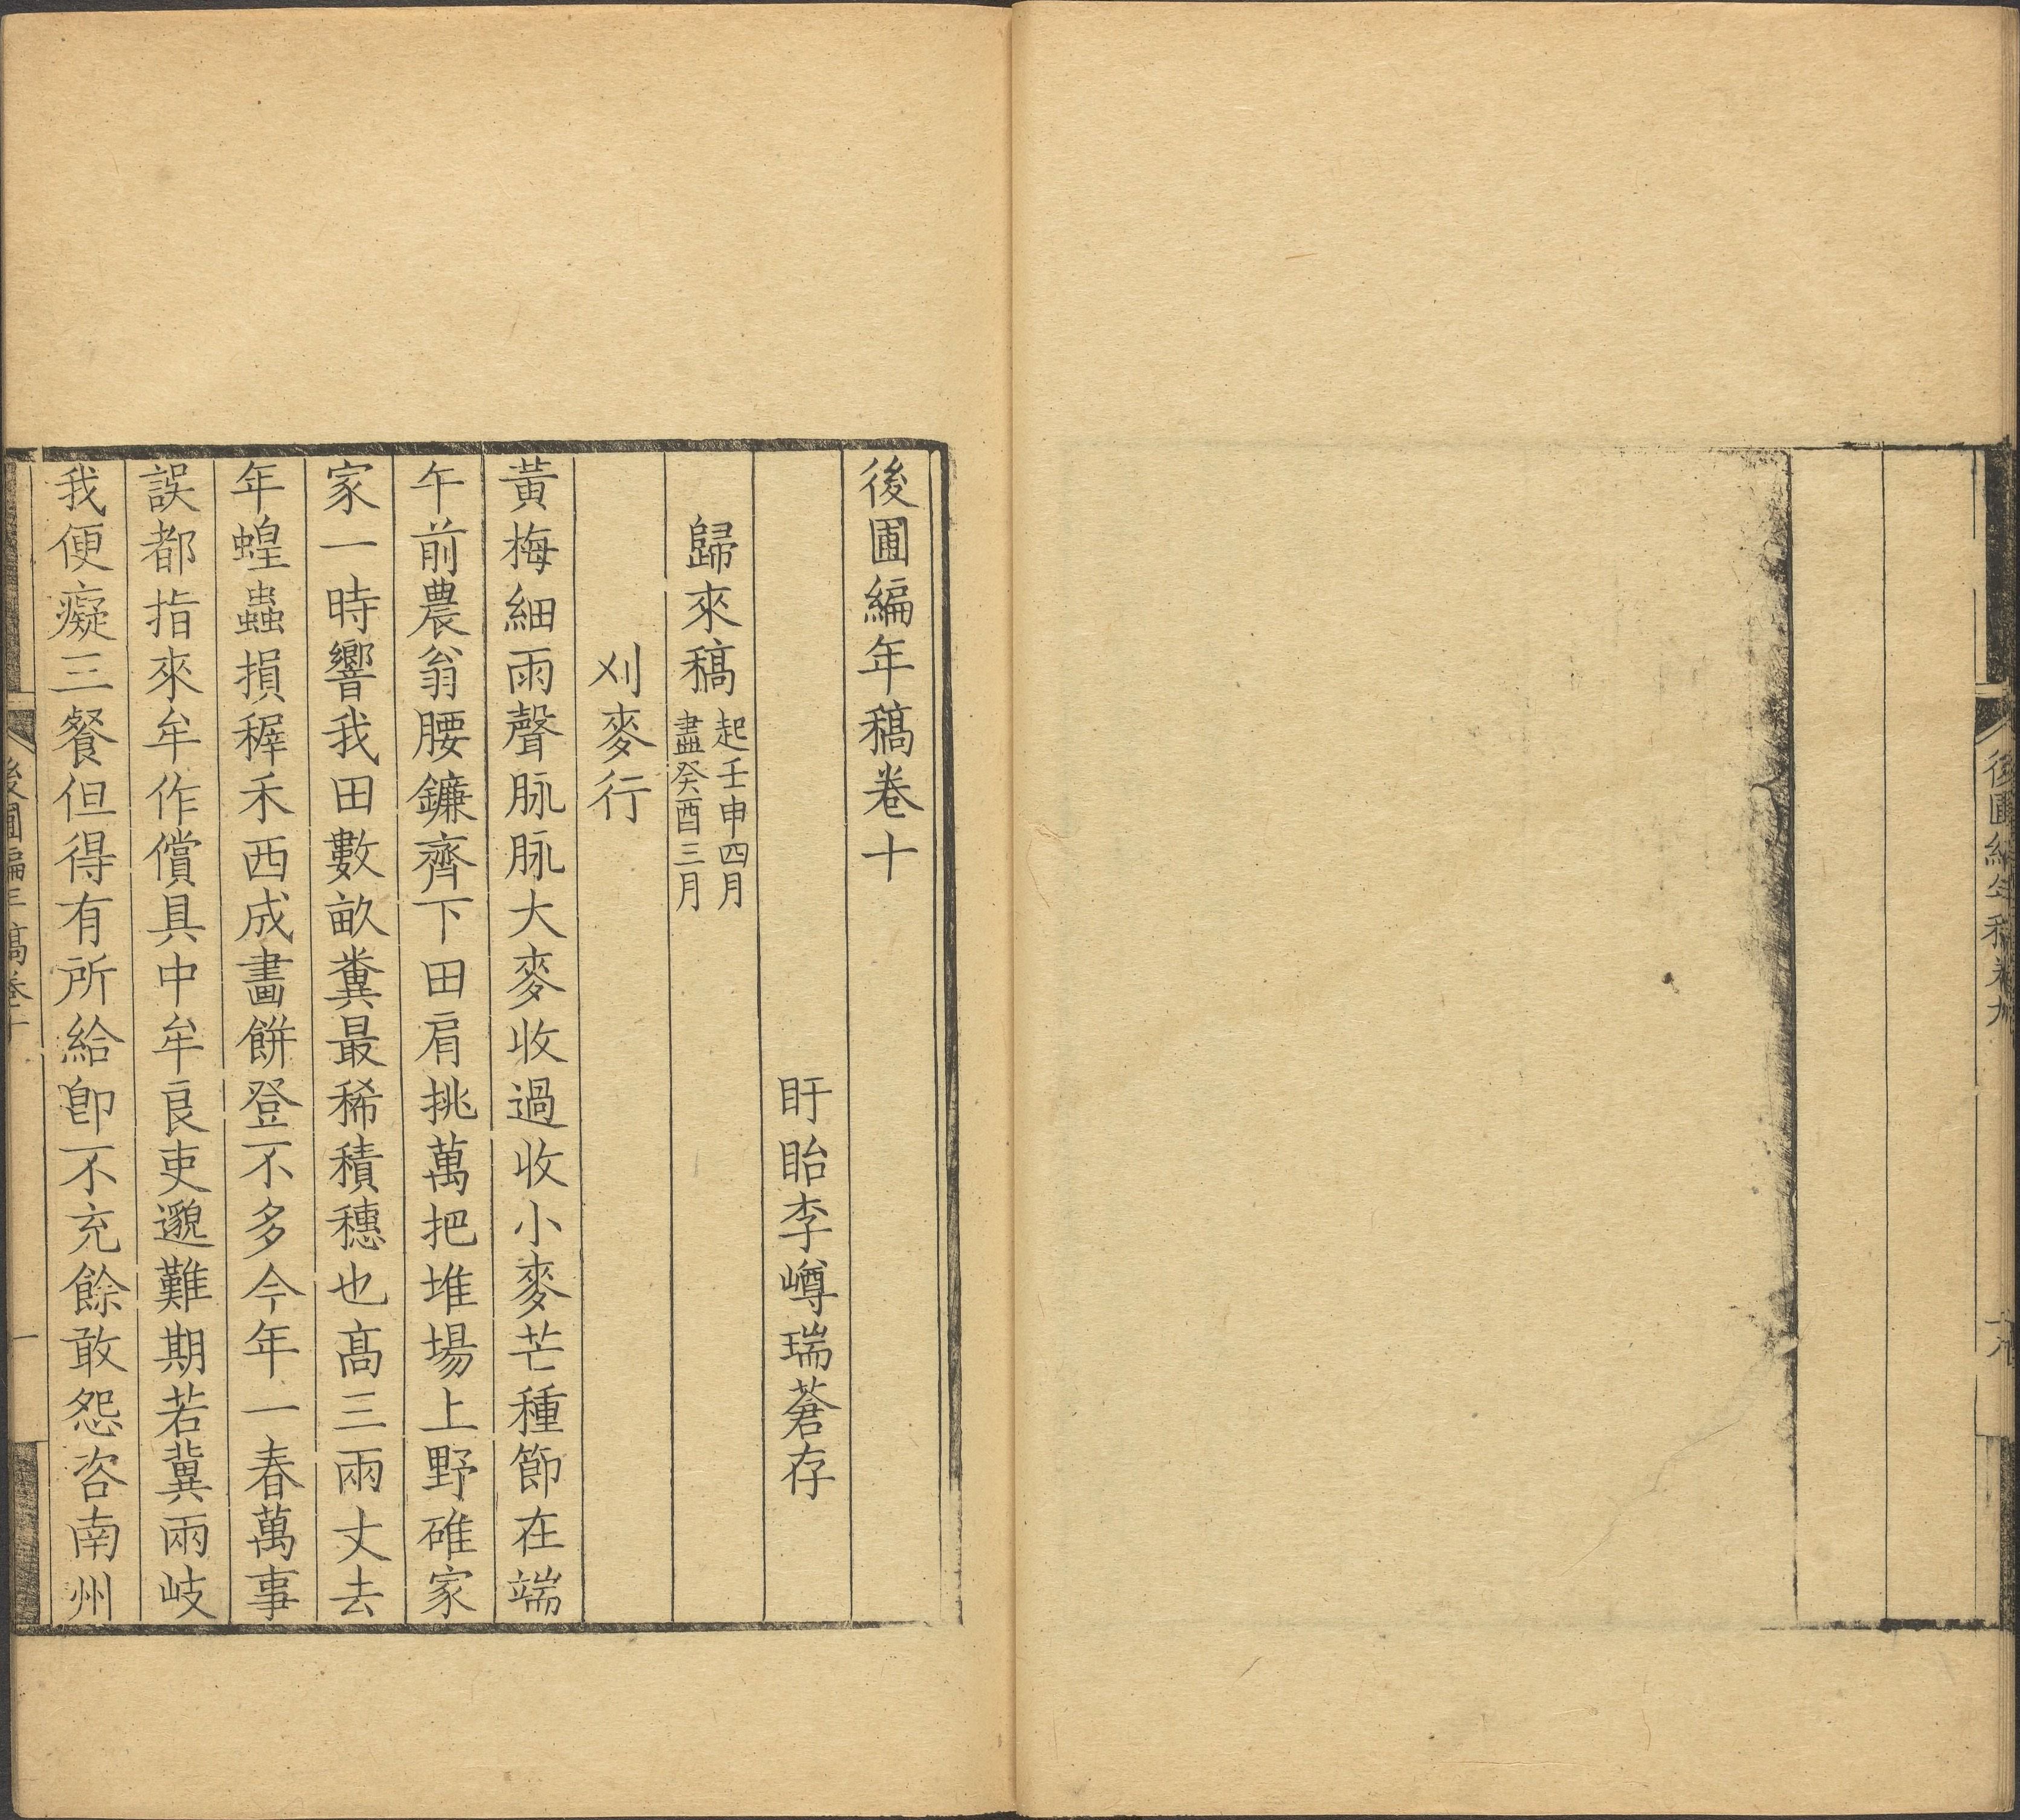 後圃編年稿卷九
十八
後圃編年稿卷十
盱眙李嶟瑞蒼存
歸來稿 起壬申四月 盡癸酉三月
刈麥行
黃梅細雨聲脉脉大麥收過收小麥芒種節在端
午前農翁腰鐮齊下田肩挑萬把堆場上野碓家
家一時響我田數畝糞最稀積穗也高三兩丈去
年蝗蟲損穉禾西成畵餅登不多今年一春萬事
誤都指來牟作償具中牟良吏邈難期若冀兩岐
我便癡三餐但得有所給卽不充餘敢怨咨南州
後圃編年稿卷十
一